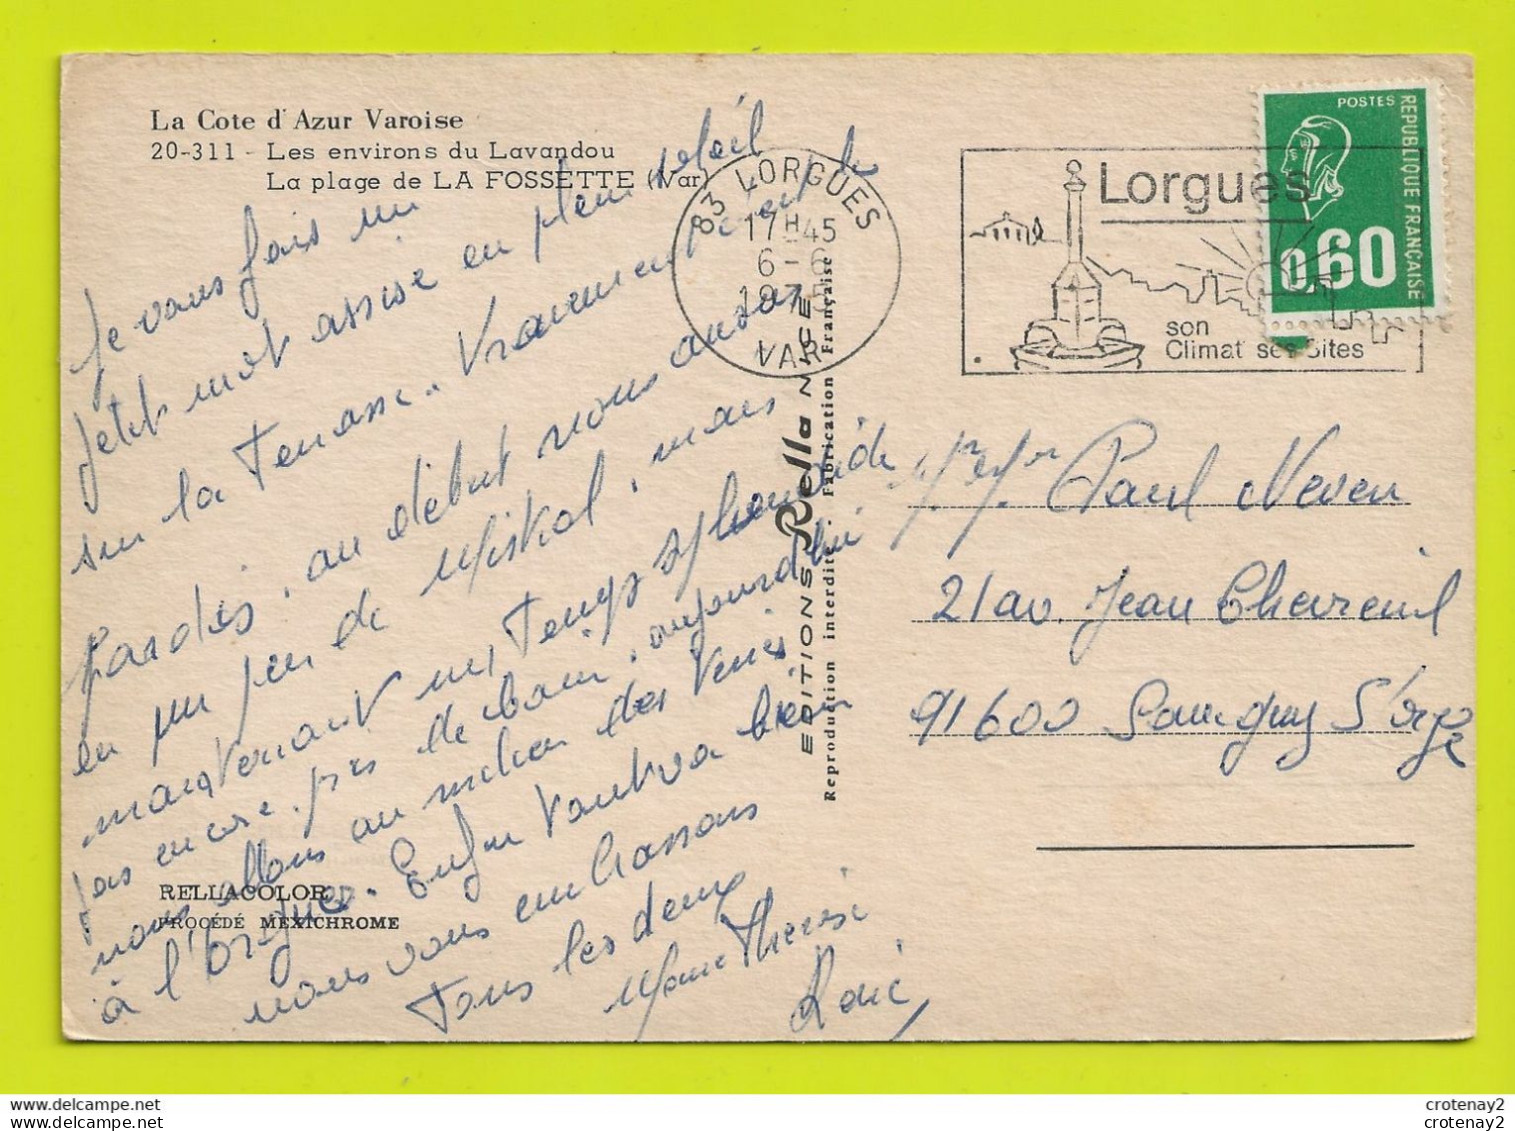 La Cote d'Azur Varoise
20-311 - Les environs du Lavandou
La plage de LA FOSSETTE (Var)
Je vous fais un
petit mot assise en plein soleil
sur la Terrasse. Vraiment c'est le
Paradis, au début nous avons
eu un peu de Mistral, mais
maintenant un Temps splendide
pas encore pris de bain, aujourd'hui
nous allons au milieu des
à l'Orgues. Enfin tout va bien
nous vous embrassons
Tous les deux
Marie Therèse
Loïc
RELLACOLOR
PROCÉDÉ MEXICHROME
83 LORGUES
17H45
6-6
1975
VAR
EDITIONS Rella NICE
Reproduction interdite - Fabrication Française
Lorgues
son
Climat ses Sites
POSTES
REPUBLIQUE FRANÇAISE
0,60
Paul Neveu
21 av. Jean Chevreuil
91600 Savigny S/orge
crotenay2
crotenay2
crotenay2
crotenay2